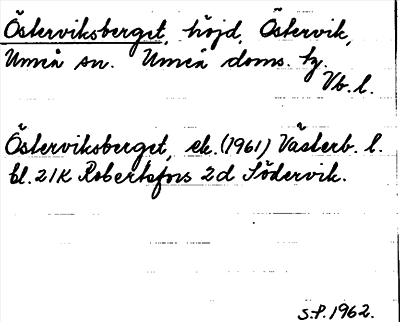 Österviksberget, höjd, Östervik,
Umeå sn. Umeå doms. tg.
Vb. l.
Österviksberget, ek. (1961) Västerb. l.
bl. 21K Robertsfors 2d Södervik.
S.P. 1962.